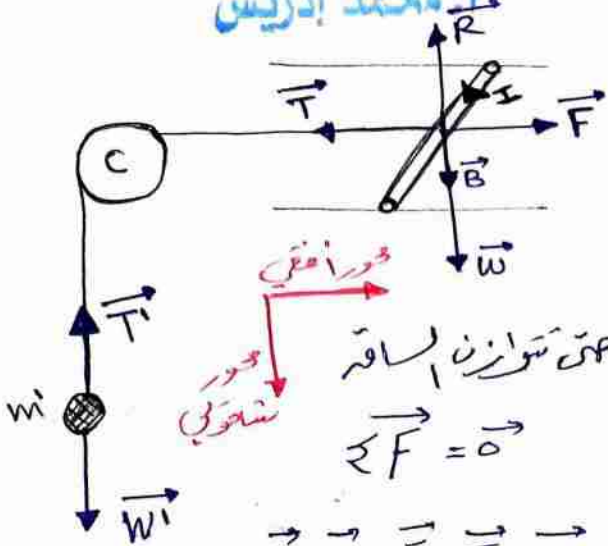 محمد إدريس
R
T
I
F
C
B
W
محور أفقي
T'
محور
شاقولي
حتى تتوازن الساق
m'
ΣF = 0
W'